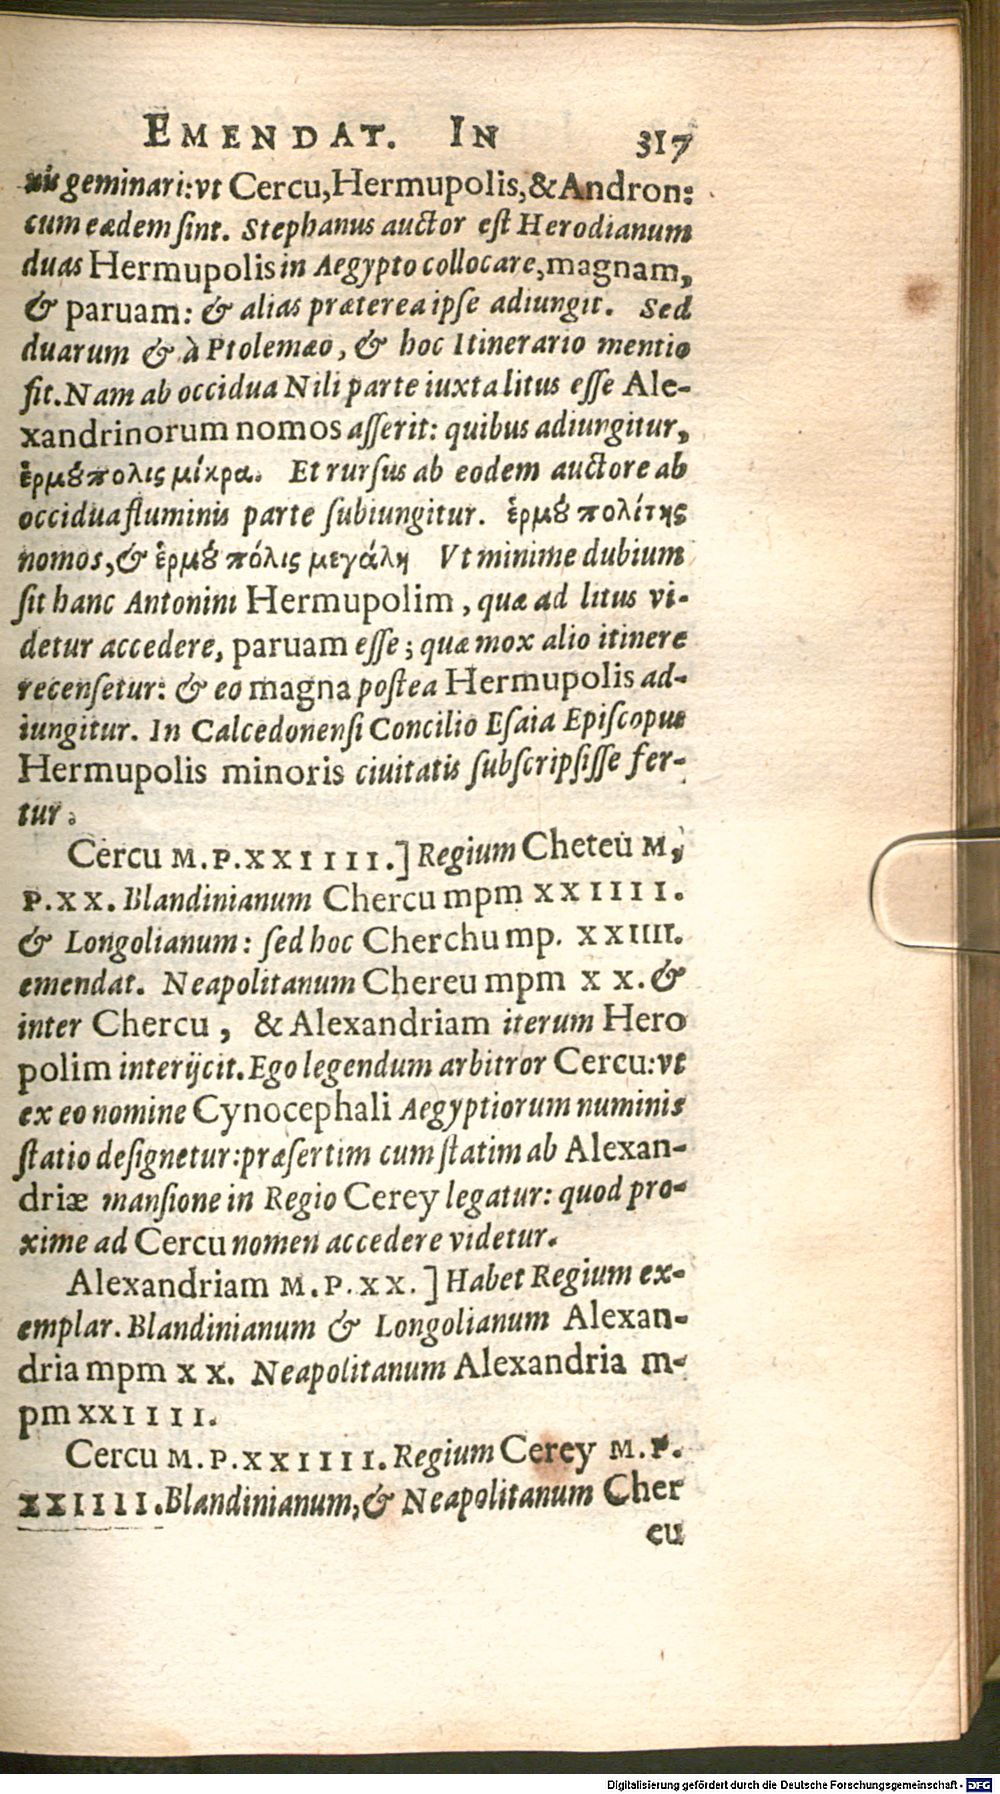 EMENDAT. IN 317
geminari: vt Cercu, Hermupolis, & Andron:
cum eædem sint. Stephanus auctor est Herodianum
duas Hermupolis in Aegypto collocare, magnam,
& paruam: & alias præterea ipse adiungit. Sed
duarum & à Ptolemæo, & hoc Itinerario mentio
fit. Nam ab occidua Nili parte iuxta litus esse Ale-
xandrinorum nomos asserit: quibus adiungitur,
ἑρμȣ̃πολις μίκρα. Et rursus ab eodem auctore ab
occidua fluminis parte subiungitur. ἑρμȣ πολίτης
nomos, & ἑρμȣ̃ πόλις μεγάλη Vt minime dubium
sit hanc Antonini Hermupolim, quæ ad litus vi-
detur accedere, paruam esse; quæ mox alio itinere
recensetur: & eo magna postea Hermupolis ad-
iungitur. In Calcedonensi Concilio Esaia Episcopus
Hermupolis minoris ciuitatis subscripsisse fer-
tur.
Cercu M.P.XXIIII.] Regium Cheteu M,
P.XX. Blandinianum Chercu mpm XXIIII.
& Longolianum: sed hoc Cherchu mp. XXIIII.
emendat. Neapolitanum Chereu mpm XX. &
inter Chercu, & Alexandriam iterum Hero
polim interijcit. Ego legendum arbitror Cercu: vt
ex eo nomine Cynocephali Aegyptiorum numinis
statio designetur: præsertim cum statim ab Alexan-
driæ mansione in Regio Cerey legatur: quod pro-
xime ad Cercu nomen accedere videtur.
Alexandriam M.P.XX.] Habet Regium ex-
emplar. Blandinianum & Longolianum Alexan-
dria mpm XX. Neapolitanum Alexandria m-
pm XXIIII.
Cercu M.P.XXIIII. Regium Cerey M.P.
XXIIII. Blandinianum, & Neapolitanum Cher
eu
Digitalisierung gefördert durch die Deutsche Forschungsgemeinschaft - DFG